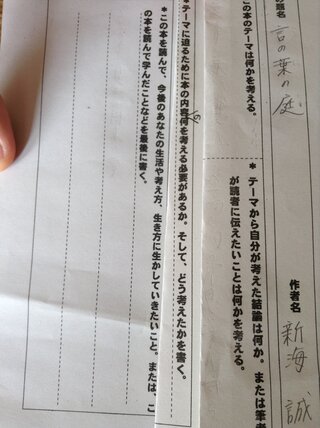 の題名
言の葉の庭
作者名
新海 誠
この本のテーマは何かを考える。
＊テーマから自分が考えた結論は何か。または筆者
が読者に伝えたいことは何かを考える。
＊テーマに迫るために本の内容何を考える必要があるか。そして、どう考えたかを書く。
の
＊この本を読んで、今後のあなたの生活や考え方、生き方に生かしていきたいこと。または、こ
の本を読んで学んだことなどを最後に書く。